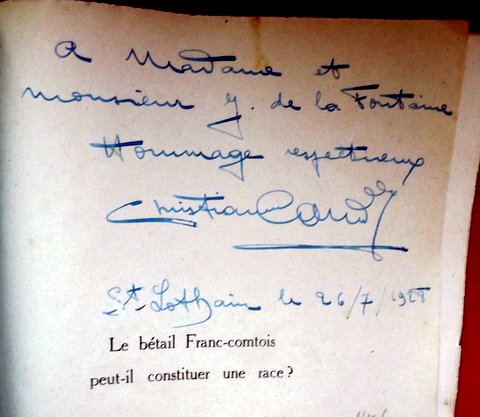 A Madame et
Monsieur J. de la Fontaine
Hommage respectueux
Christian
St Lothain le 26/7/
Le bétail Franc-comtois
peut-il constituer une race ?